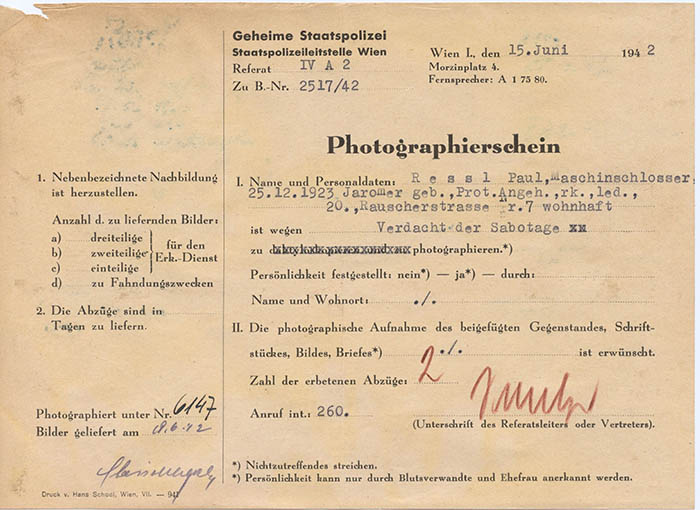 Geheime Staatspolizei
Staatspolizeileitstelle Wien
Referat IV A 2
Zu B.-Nr. 2517/42
Wien I., den 15. Juni 1942
Morzinplatz 4.
Fernsprecher: A 1 75 80.
Photographierschein
1. Nebenbezeichnete Nachbildung
ist herzustellen.
Anzahl d. zu liefernden Bilder:
a) dreiteilige
b) zweiteilige
c) einteilige
für den
Erk.-Dienst
d) zu Fahndungszwecken
2. Die Abzüge sind in
Tagen zu liefern.
Photographiert unter Nr. 6147
Bilder geliefert am 18.6.42
Druck v. Hans Schodl, Wien, VII. — 941
I. Name und Personaldaten: Ressl Paul, Maschinschlosser,
25.12.1923 Jaromer geb., Prot.Angeh., rk., led.,
20., Rauscherstrasse Nr.7 wohnhaft
ist wegen Verdacht der Sabotage
zu photographieren.*)
Persönlichkeit festgestellt: nein*) — ja*) — durch:
Name und Wohnort: ./.
II. Die photographische Aufnahme des beigefügten Gegenstandes, Schrift-
stückes, Bildes, Briefes*) ./. ist erwünscht.
Zahl der erbetenen Abzüge: 2
Anruf int.: 260.
(Unterschrift des Referatsleiters oder Vertreters).
*) Nichtzutreffendes streichen.
*) Persönlichkeit kann nur durch Blutsverwandte und Ehefrau anerkannt werden.